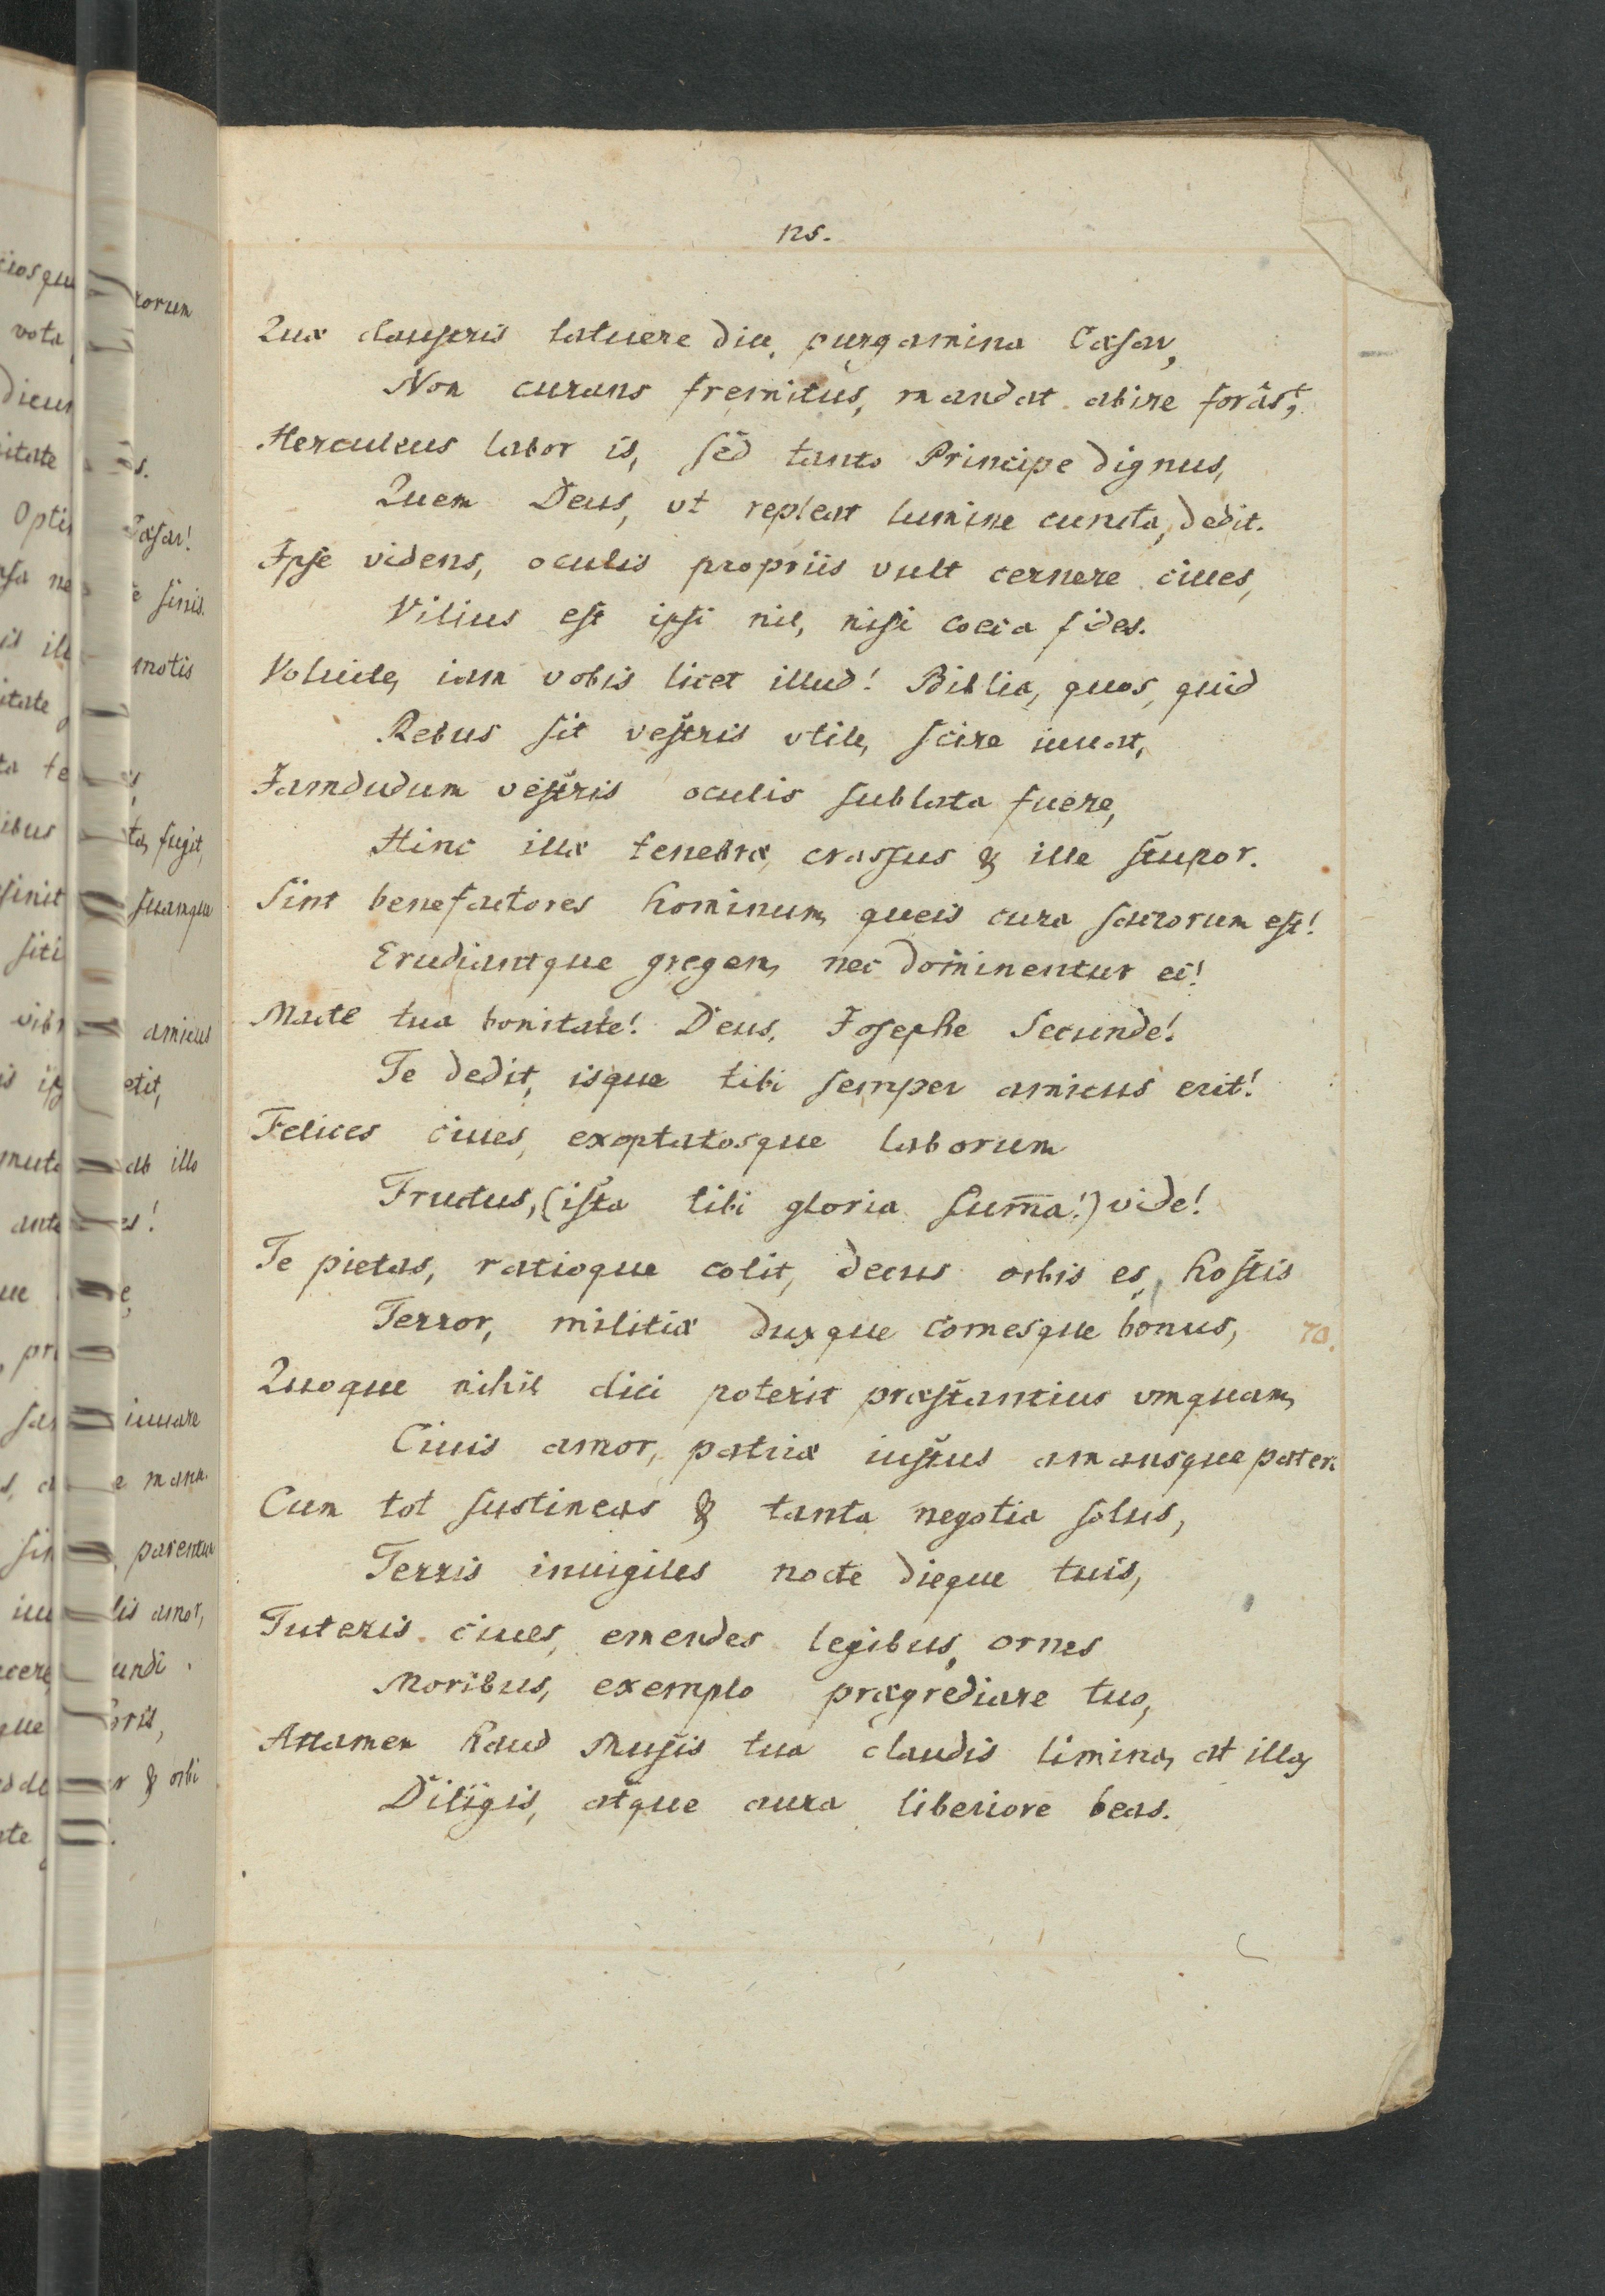 ns.
Quæ claustris latuere diu, purgamina Cæsar,
Non curans fremitus, mandat abire foràs;
Herculeus labor is, sed tanto Principe dignus,
Quem Deus, vt repleat lumine cuncta, dedit.
Ipse videns, oculis propriis vult cernere ciues,
Vilius est ipsi nil, nisi coeca fides.
Voluite, iam vobis licet illud! Biblia, quos, quid
Rebus sit vestris vtile, scire iuuat,
Iamdudum vestris oculis sublata fuere,
Hinc illæ tenebræ, crassus & ille stupor.
Sint benefactores hominum, queis cura sacrorum est!
Erudiantque gregem, nec dominentur ei!
Macte tua bonitate! Deus, Iosephe Secunde!
Te dedit, isque tibi semper amicus erit!
Felices ciues, exoptatosque laborum
Fructus, (ista tibi gloria sum̄a!) vide!
Te pietas, ratioque colit, decus orbis es, hostis
Terror, militiæ duxque comesque bonus, 70.
Quoque nihil dici poterit præstantius vmquam,
Ciuis amor, patriæ iustus amansque pater.
Cum tot sustineas & tanta negotia solus,
Terris inuigiles nocte dieque tuis,
Tuteris ciues, emendes legibus, ornes
Moribus, exemplo prægrediare tuo,
Attamen haud Musis tua claudis limina, at illas
Diligis, atque aura liberiore beas.